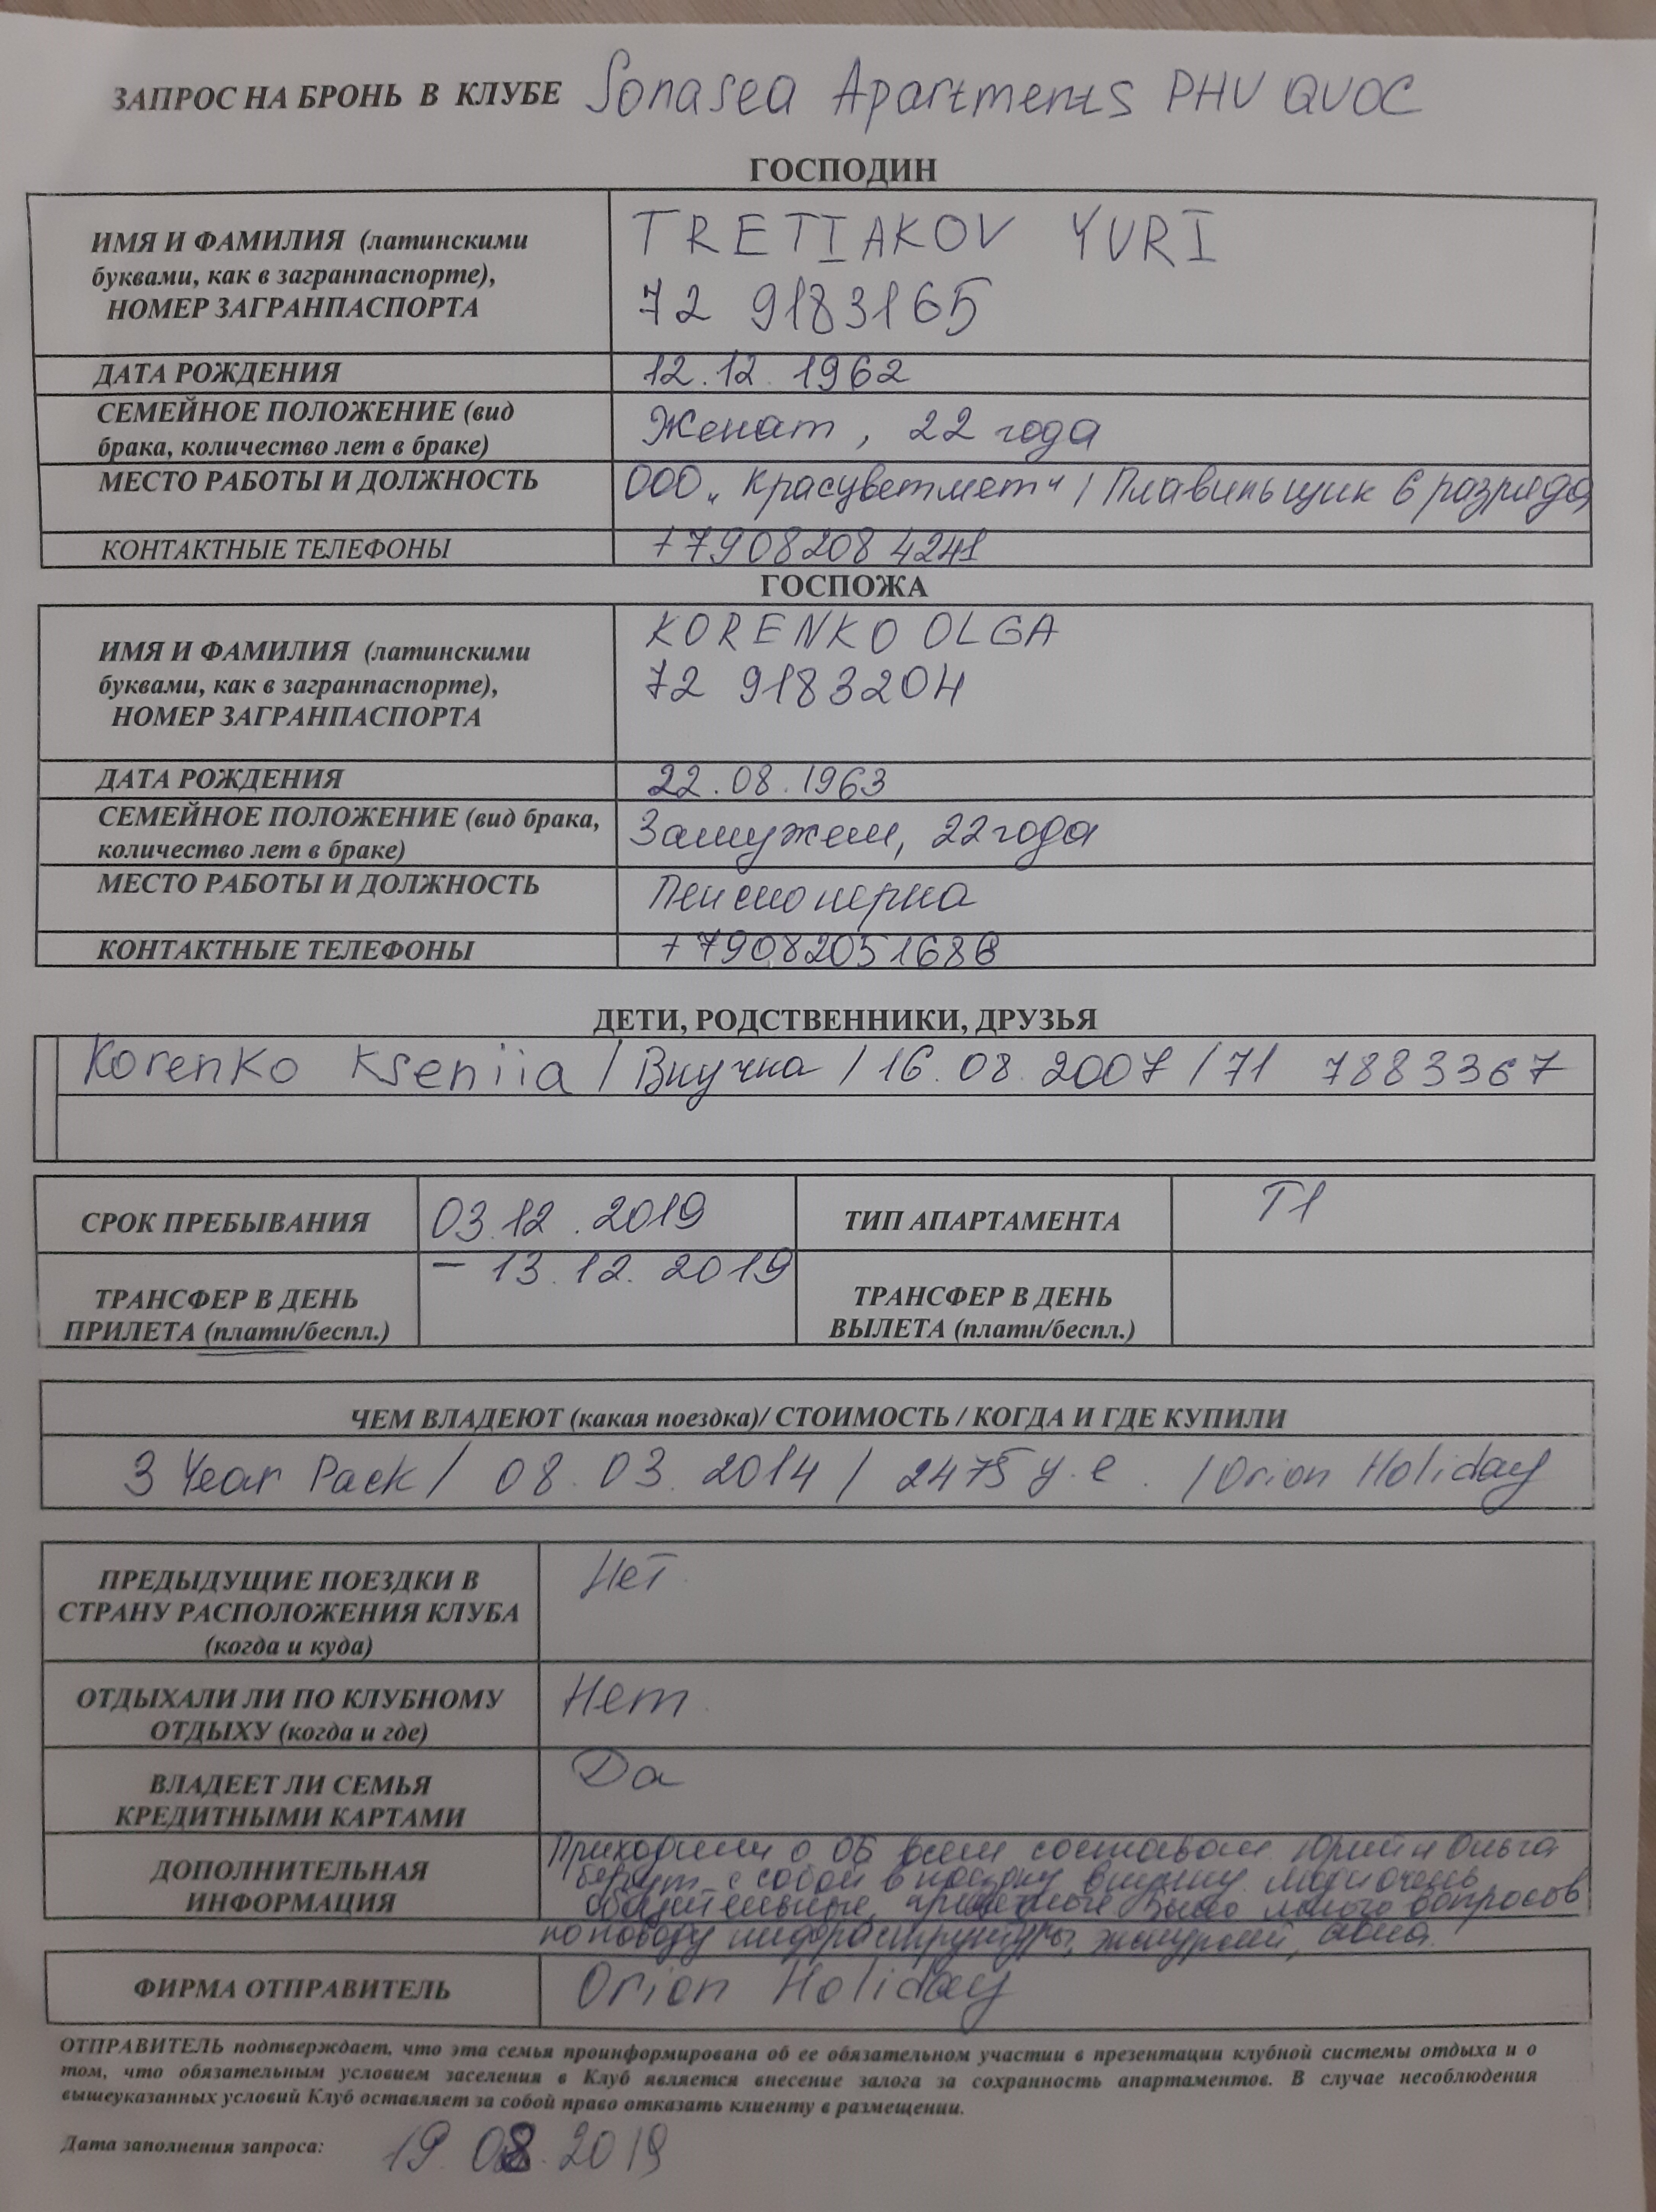 ЗАПРОС НА БРОНЬ В КЛУБЕ Sonasea Apartments PHU QUOC
ГОСПОДИН
ИМЯ И ФАМИЛИЯ (латинскими
буквами, как в загранпаспорте),
НОМЕР ЗАГРАНПАСПОРТА
TRETIAKOV YURI
72 9183165
ДАТА РОЖДЕНИЯ 12.12.1962
СЕМЕЙНОЕ ПОЛОЖЕНИЕ (вид
брака, количество лет в браке)
Женат, 22 года
МЕСТО РАБОТЫ И ДОЛЖНОСТЬ ООО „Красцветмет" / Плавильщик 6 разряда
КОНТАКТНЫЕ ТЕЛЕФОНЫ +79082084241
ГОСПОЖА
ИМЯ И ФАМИЛИЯ (латинскими
буквами, как в загранпаспорте),
НОМЕР ЗАГРАНПАСПОРТА
KORENKO OLGA
72 9183204
ДАТА РОЖДЕНИЯ 22.08.1963
СЕМЕЙНОЕ ПОЛОЖЕНИЕ (вид брака,
количество лет в браке)
Замужем, 22 года
МЕСТО РАБОТЫ И ДОЛЖНОСТЬ Пенсионерка
КОНТАКТНЫЕ ТЕЛЕФОНЫ +79082051686
ДЕТИ, РОДСТВЕННИКИ, ДРУЗЬЯ
Korenko Kseniia / Внучка / 16.08.2007 / 71 7883367
СРОК ПРЕБЫВАНИЯ 03.12.2019 ТИП АПАРТАМЕНТА T1
– 13.12.2019
ТРАНСФЕР В ДЕНЬ
ПРИЛЕТА (платн/беспл.)
ТРАНСФЕР В ДЕНЬ
ВЫЛЕТА (платн/беспл.)
ЧЕМ ВЛАДЕЮТ (какая поездка)/ СТОИМОСТЬ / КОГДА И ГДЕ КУПИЛИ
3 Year Pack / 08.03.2014 / 2475 у.е. / Orion Holiday
ПРЕДЫДУЩИЕ ПОЕЗДКИ В
СТРАНУ РАСПОЛОЖЕНИЯ КЛУБА
(когда и куда)
Нет
ОТДЫХАЛИ ЛИ ПО КЛУБНОМУ
ОТДЫХУ (когда и где)
Нет.
ВЛАДЕЕТ ЛИ СЕМЬЯ
КРЕДИТНЫМИ КАРТАМИ
Да
ДОПОЛНИТЕЛЬНАЯ
ИНФОРМАЦИЯ
Приходили о ОБ всем составом. Юрий и Ольга
берут с собой в поездку внучку. Люди очень
общительные, приятные. Было много вопросов
по поводу инфраструктуры, экскурсий,
ФИРМА ОТПРАВИТЕЛЬ Orion Holiday
ОТПРАВИТЕЛЬ подтверждает, что эта семья проинформирована об ее обязательном участии в презентации клубной системы отдыха и о
том, что обязательным условием заселения в Клуб является внесение залога за сохранность апартаментов. В случае несоблюдения
вышеуказанных условий Клуб оставляет за собой право отказать клиенту в размещении.
Дата заполнения запроса: 19.08.2019